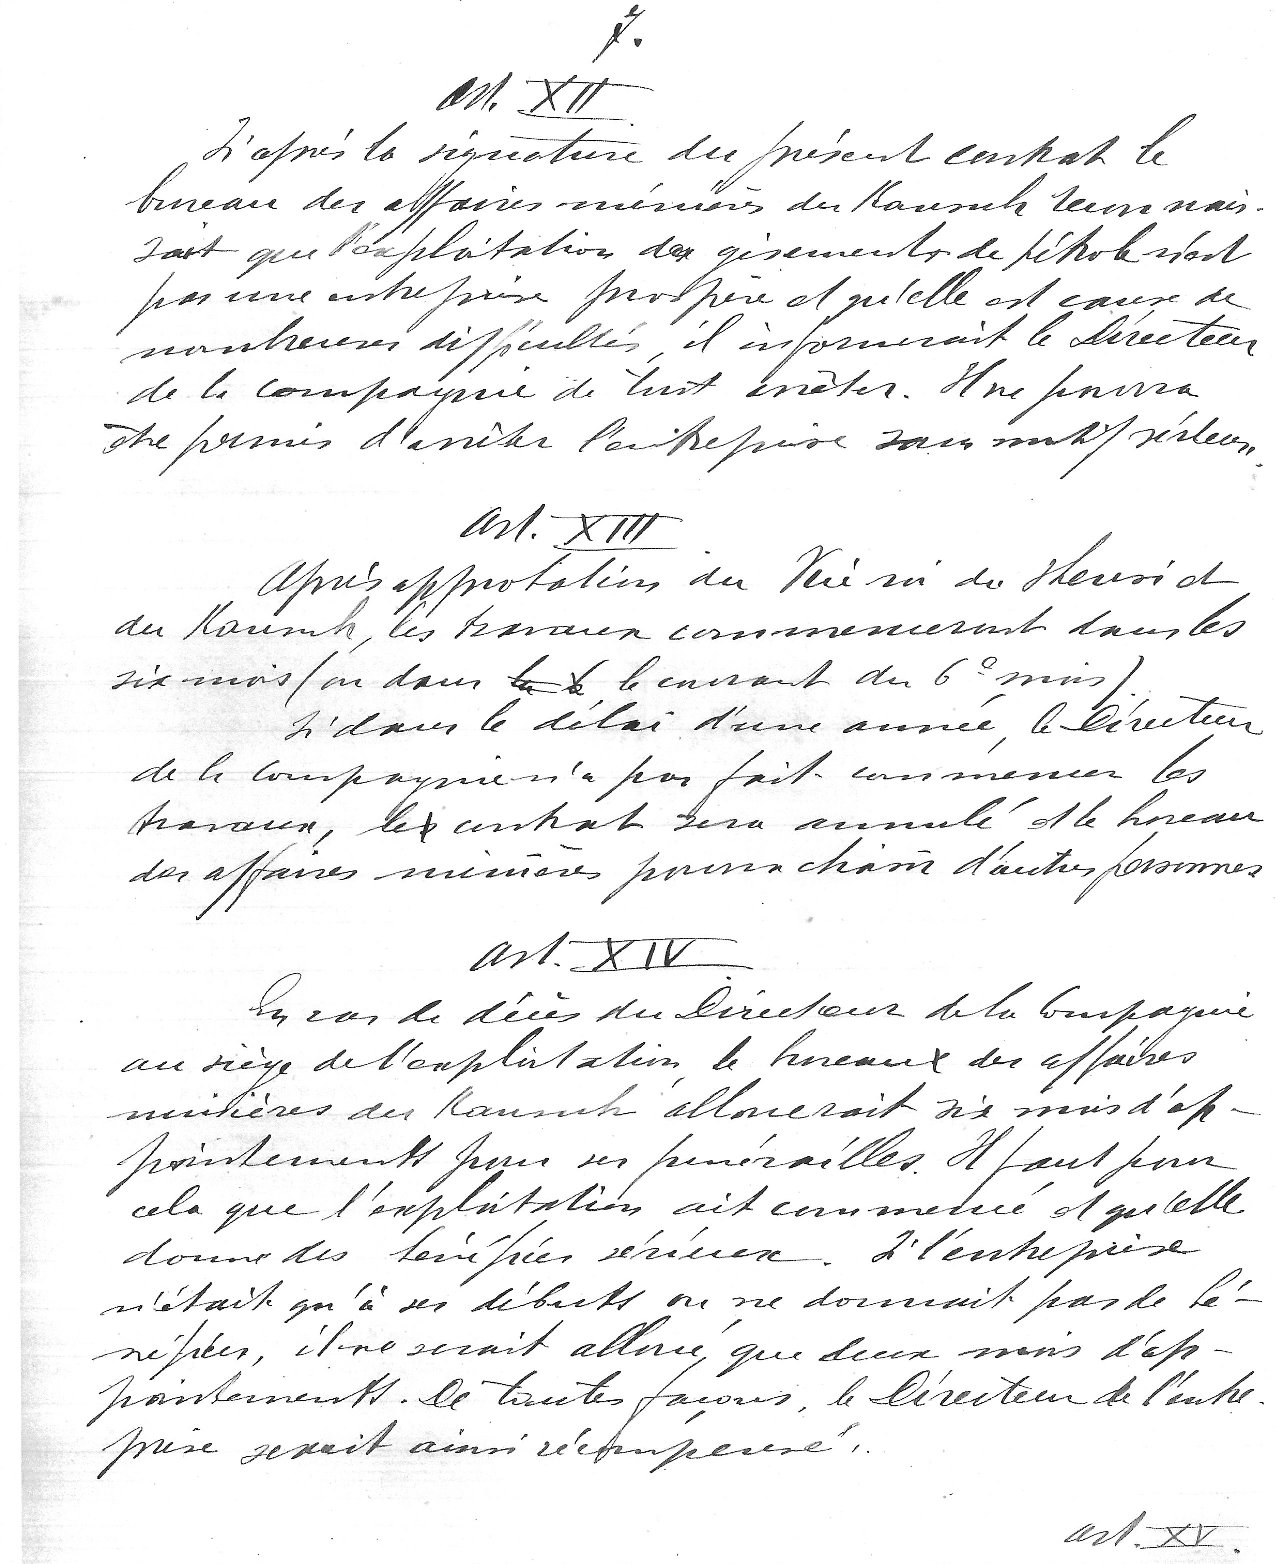 7.
Art. XII
Si après la signature du présent contrat le
bureau des affaires minières du Kansuh reconnais-
sait que l'exploitation des gisements de pétrole n'est
pas une entreprise prospère et qu'elle est cause de
nombreuses difficultés, il informerait le Directeur
de la compagnie de tout arrêter. Il ne pourra
être permis d'arrêter l'entreprise sans motif sérieux.
Art. XIII
Après approbation du Vice roi du Shensi et
du Kansuh, les travaux commenceront dans les
six mois (ou dans le courant du 6e mois).
Si dans le délai d'une année, le Directeur
de la compagnie n'a pas fait commencer les
travaux, le contrat sera annulé et le bureau
des affaires minières pourra choisir d'autres personnes
Art. XIV
En cas de décès du Directeur de la Compagnie
au siège de l'exploitation, le bureau des affaires
minières du Kansuh allouerait six mois d'ap-
pointements pour ses funérailles. Il faut pour
cela que l'exploitation ait commencé et qu'elle
donne des bénéfices sérieux. Si l'entreprise
n'était qu'à ses débuts ou ne donnait pas de bé-
néfices, il ne serait alloué que deux mois d'ap-
pointements. De toutes façons, le Directeur de l'entre-
prise serait ainsi récompensé.
Art. XV.